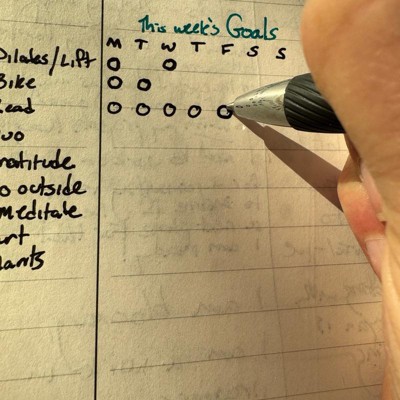 This week's Goals
M T W T F S S
Pilates/Lift
Bike
Read
uo
ratitude
o outside
meditate
art
lants